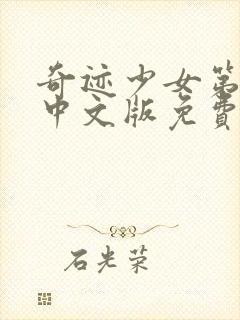 奇迹少女第
中文版免費
石光荣